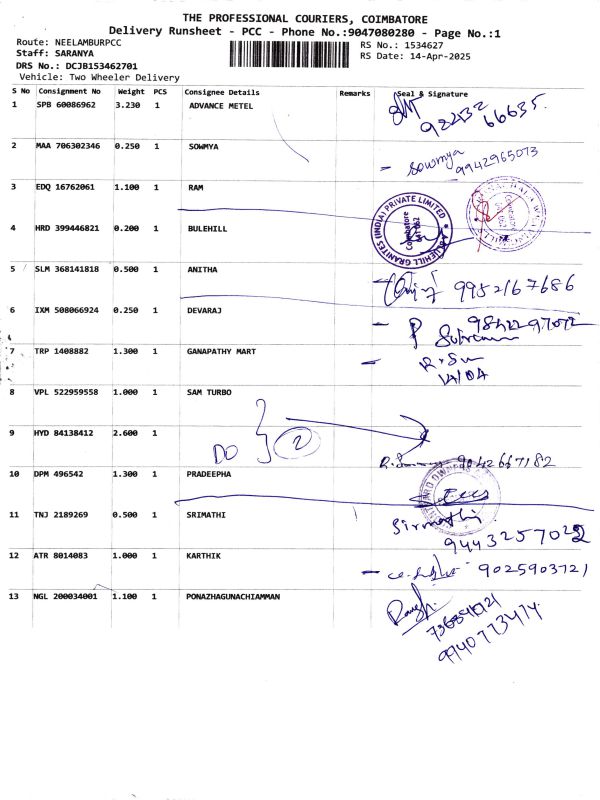 THE PROFESSIONAL COURIERS, COIMBATORE
Delivery Runsheet - PCC - Phone No.:9047080280 - Page No.:1
Route: NEELAMBURPCC RS No.: 1534627
Staff: SARANYA RS Date: 14-Apr-2025
DRS No.: DCJB153462701
Vehicle: Two Wheeler Delivery
S No Consignment No Weight PCS Consignee Details Remarks Seal & Signature
1 SPB 60086962 3.230 1 ADVANCE METEL
9843266635.
2 MAA 706302346 0.250 1 SOWMYA
- Sowmya
9942965073
3 EDQ 16762061 1.100 1 RAM
4 HRD 399446821 0.200 1 BULEHILL
BLUEHILL GRANITES (INDIA) PRIVATE LIMITED
Coimbatore
5 SLM 368141818 0.500 1 ANITHA
9952167686
6 IXM 508066924 0.250 1 DEVARAJ
7 TRP 1408882 1.300 1 GANAPATHY MART
14/04
8 VPL 522959558 1.000 1 SAM TURBO
9 HYD 84138412 2.600 1
DO 2
9042667182
10 DPM 496542 1.300 1 PRADEEPHA
11 TNJ 2189269 0.500 1 SRIMATHI
Sirmathi
12 ATR 8014083 1.000 1 KARTHIK
9025903721
13 NGL 200034001 1.100 1 PONAZHAGUNACHIAMMAN